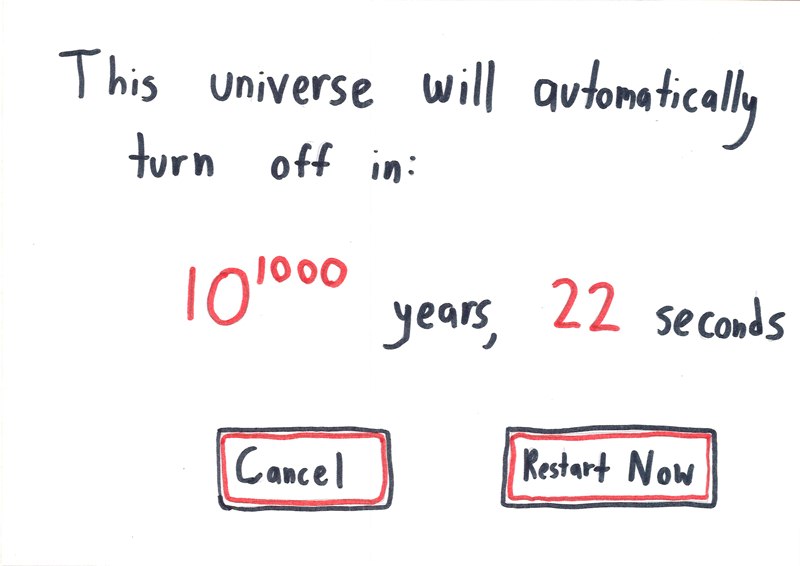 This universe will automatically
turn off in:
10^1000 years, 22 seconds
Cancel Restart Now